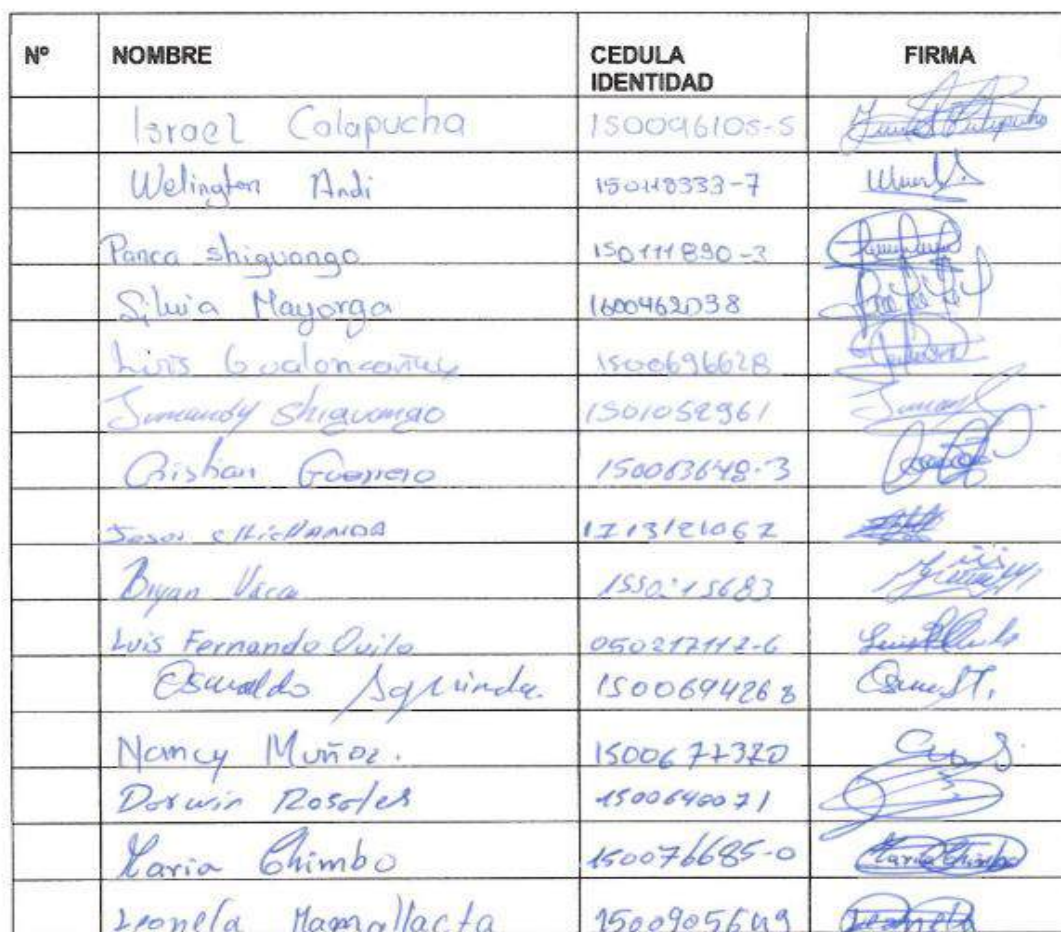 Nº NOMBRE CEDULA IDENTIDAD FIRMA
Israel Calapucha 150096105-5
Welington Andi 150118333-7
Panca shiguango 150111890-3
Silvia Mayorga 1600462038
Luis 1500696628
Jumandy Shiguango 1501052961
Cristian Guerrero 150063648-3
1713121067
Bryan Vaca 1550215683
Luis Fernando Quilo 050217112-6
Oswaldo 1500694268
Nancy Muñoz. 1500677320
Darwin Rosales 1500640071
Maria Chimbo 150076685-0 Maria Chimbo
Leonela Mamallacta 1500905649 Leonela